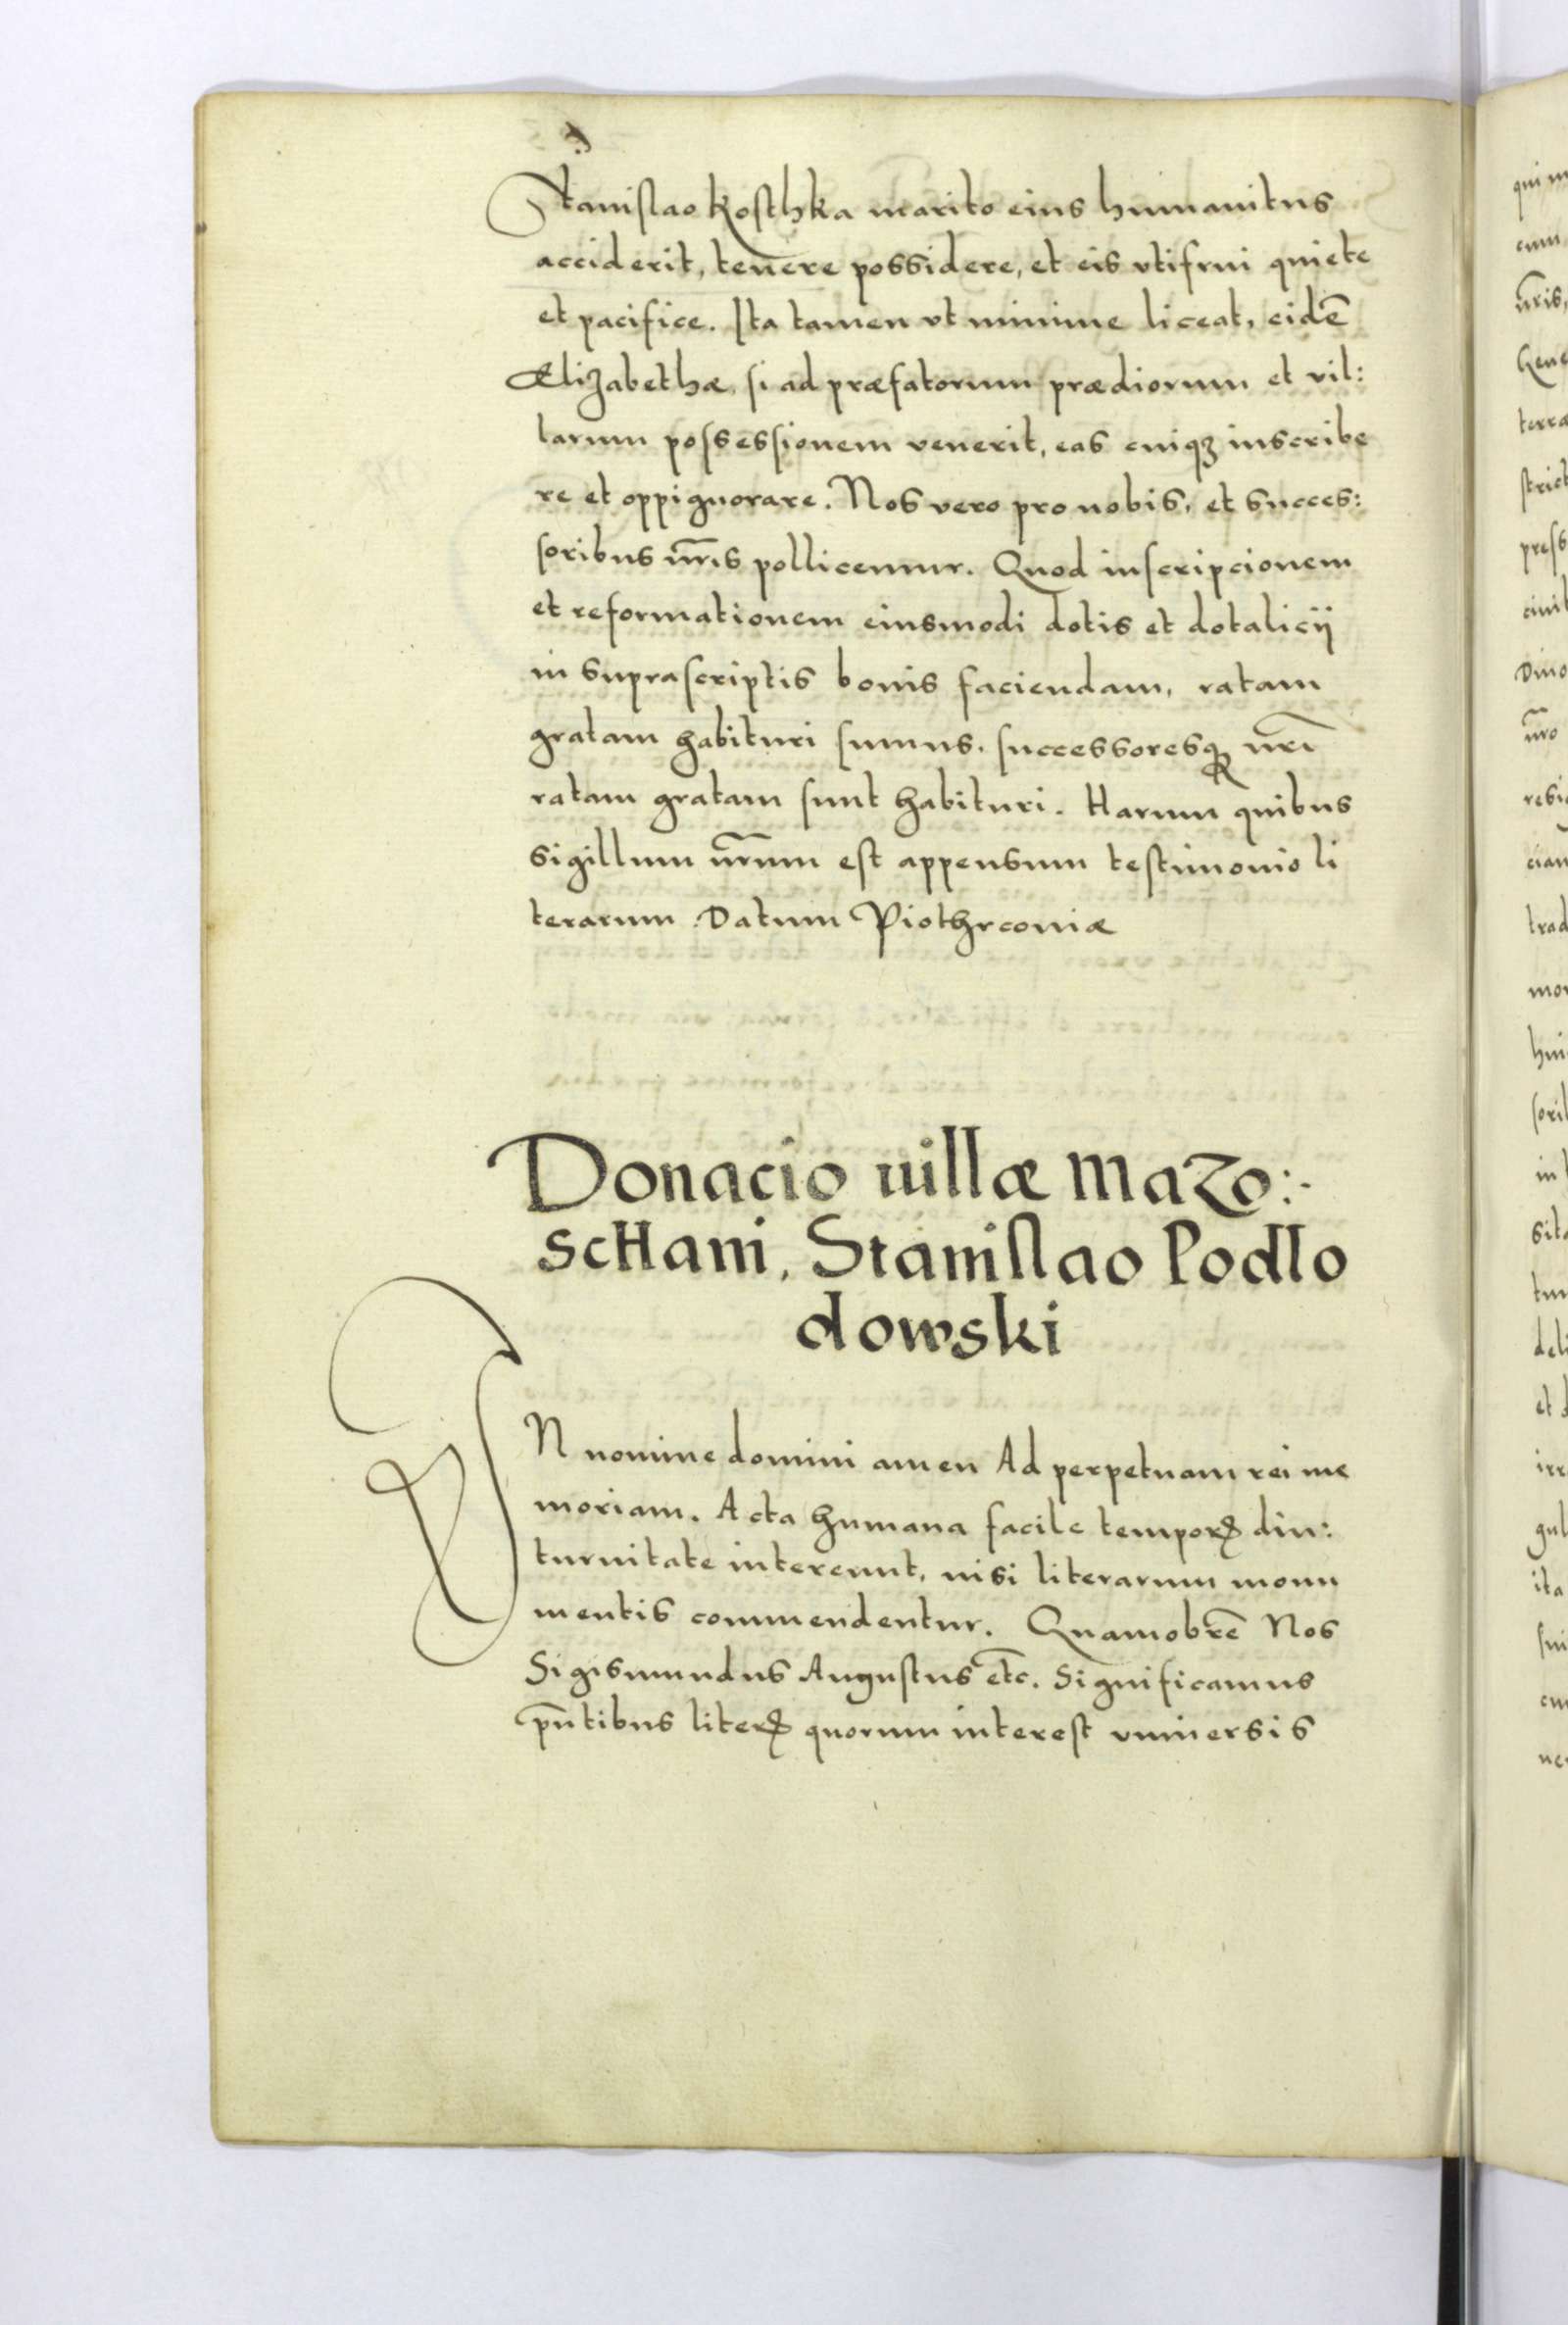 Stanislao Kosthka marito eius humanitus
acciderit, tenere possidere, et eis vtifrui quiete
et pacifice. Ita tamen vt minime liceat, eidē
Elizabethæ, si ad præfatorum prædiorum et vil:
larum possessionem venerit, eas cuiqꝫ inscribe
re et oppignorare. Nos vero pro nobis, et succes:
soribus nr̃is pollicemur. Quod inscripcionem
et reformationem eiusmodi dotis et dotalicij
in suprascriptis bonis faciendam, ratam
gratam habituri sumus. successoresqꝫ nrĩ
ratam gratam sunt habituri. Harum quibus
sigillum nr̃um est appensum testimonio li
terarum. Datum Piothrconiæ
Donacio uillæ Mazo:
scHani, Stanislao Podlo
dowski
IN nomine domini amen Ad perpetuam rei me
moriam. Acta humana facile temporꝭ diu:
turnitate intereunt, nisi literarum monu
mentis commendentur. Quamobrē Nos
Sigismundus Augustus etc̄. Significamus
pn̄tibus literꝭ quorum interest vniuersis
qui
cum
nr̃is,
terra